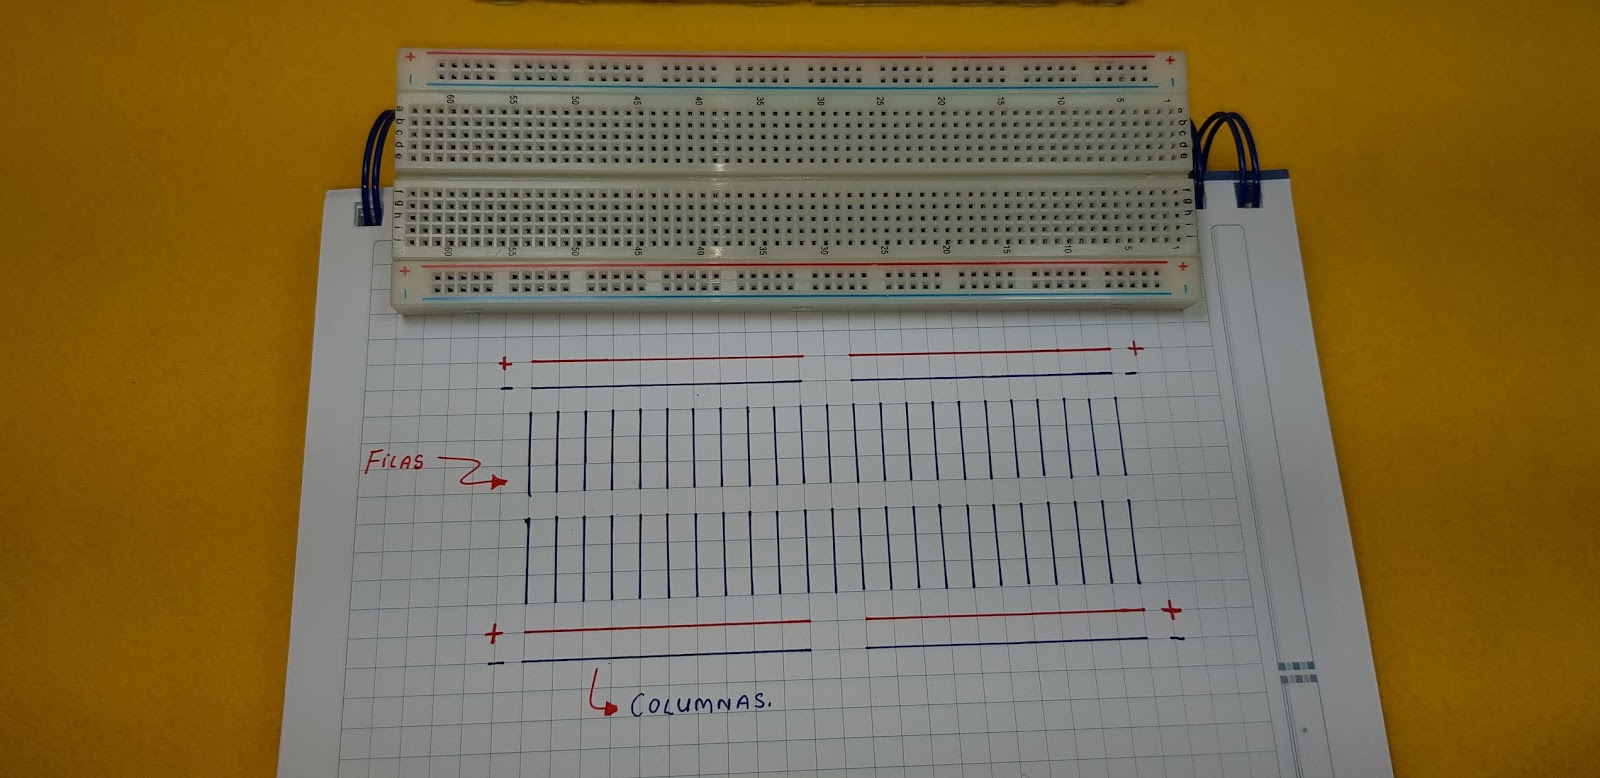 + +
- -
60 55 50 45 40 35 30 25 20 15 10 5 1
a a
b b
c c
d d
e e
f f
g g
h h
i i
j j
60 55 50 45 40 35 30 25 20 15 10 5 1
+ +
- -
+ +
- -
FILAS
+ +
- -
COLUMNAS.